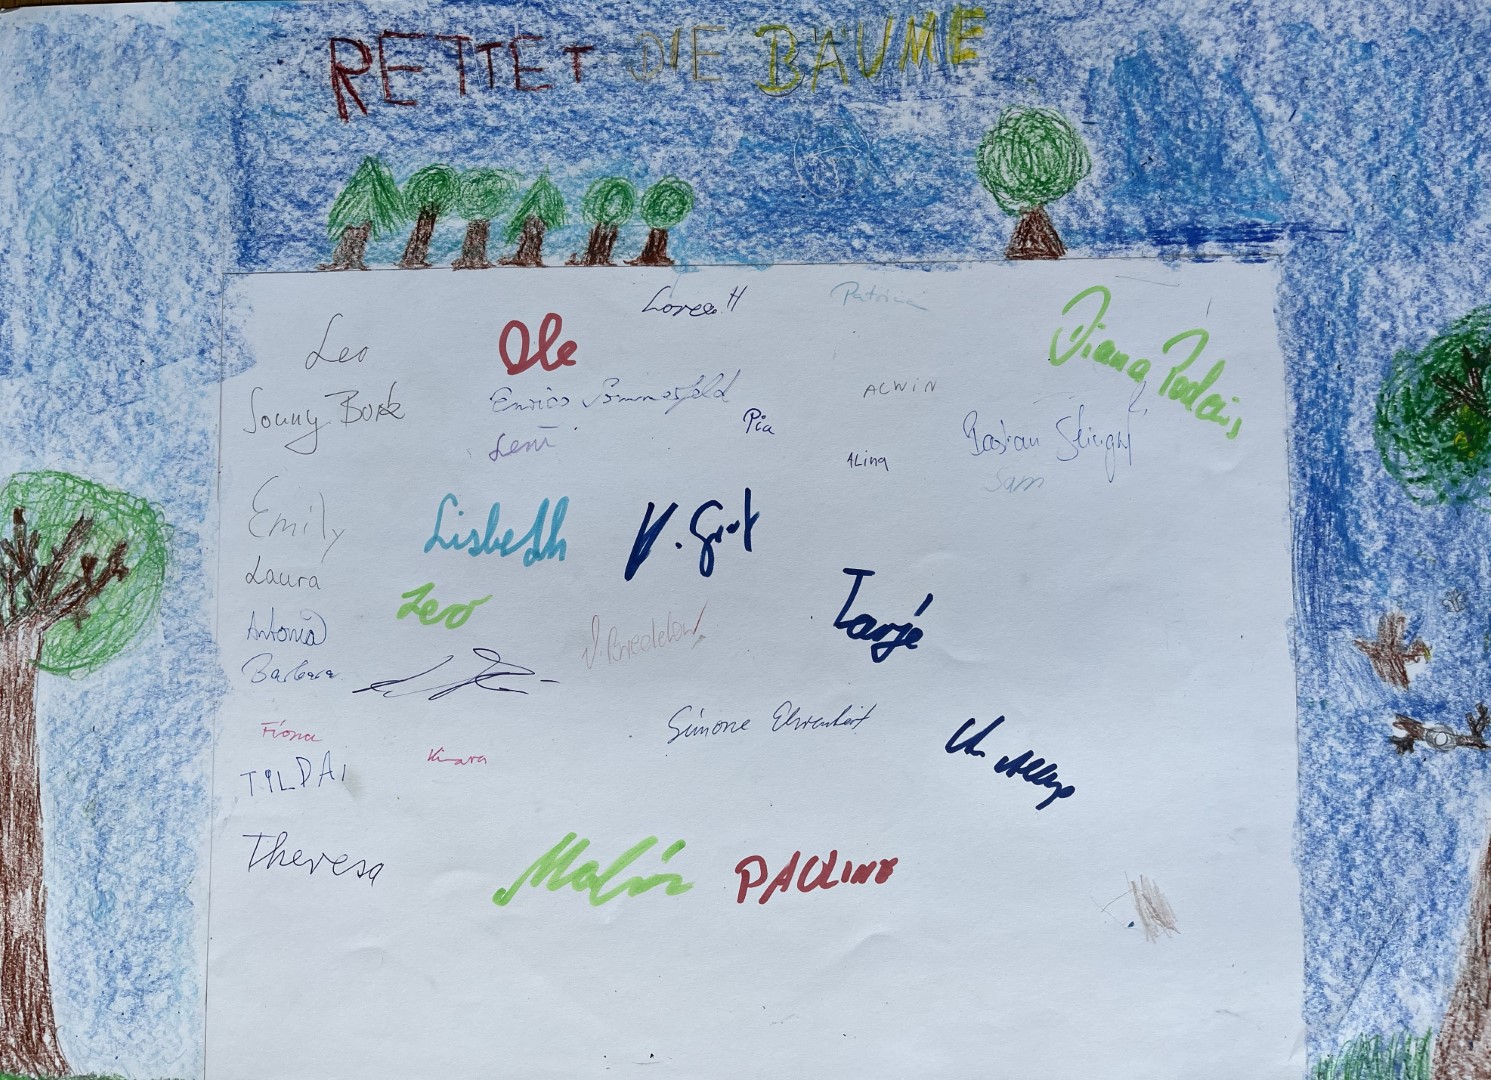 RETTET DIE BÄUME
Lorea H
Patricia
Leo
Ole
Diana
Sonny
Enrico Sommerfeld
ALWIN
Pia
Leni
Bastian
ALina
Sam
Emily
Lisbeth
V. Grot
Laura
Leo
Tarjé
Antonia
Barbara
Simone
Fiona
Kiara
TILDA
Theresa
Malin
PAULINE